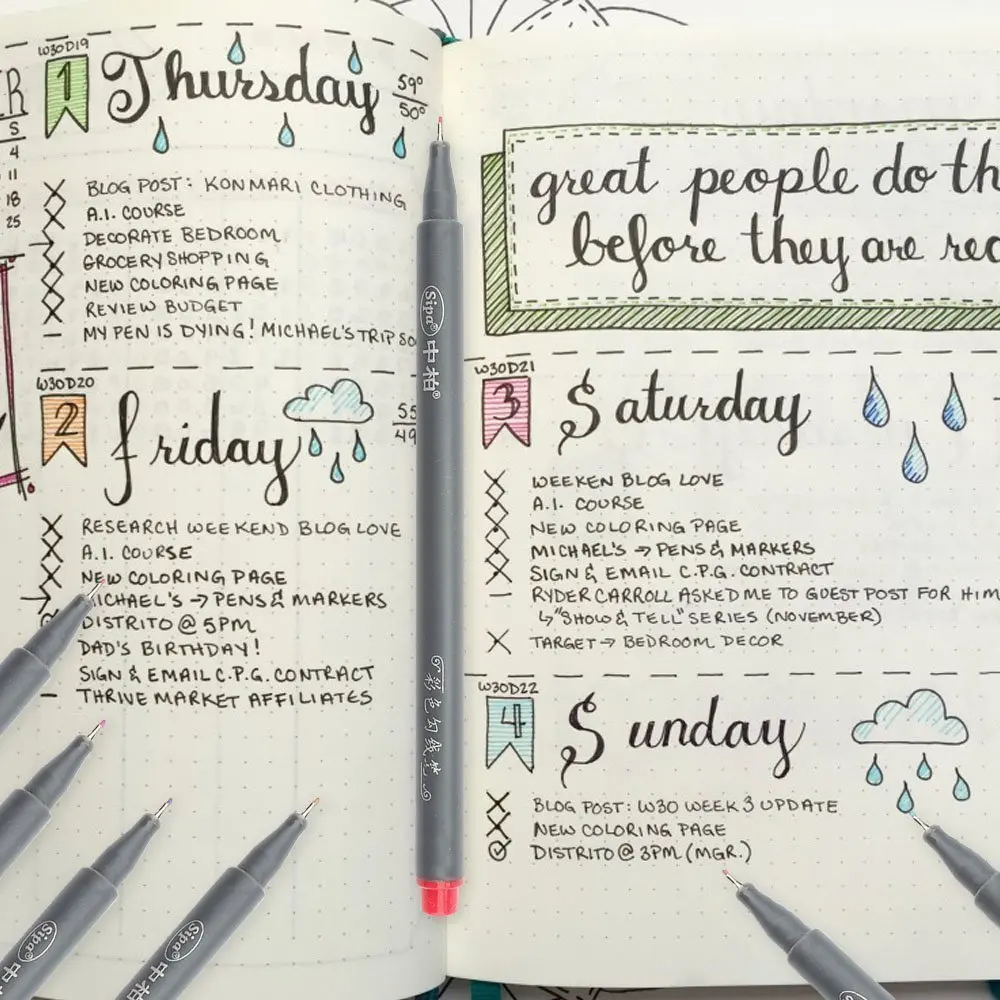 R
S
4
11
18
25
W30D19
1
Thursday
59°
50°
BLOG POST: KONMARI CLOTHING
A.I. COURSE
DECORATE BEDROOM
GROCERY SHOPPING
NEW COLORING PAGE
REVIEW BUDGET
MY PEN IS DYING! MICHAEL'S TRIP SO
W30D20
2
friday
55
49
RESEARCH WEEKEND BLOG LOVE
A.I. COURSE
NEW COLORING PAGE
MICHAEL'S → PENS & MARKERS
DISTRITO @ 5PM
DAD'S BIRTHDAY!
SIGN & EMAIL C.P.G. CONTRACT
THRIVE MARKET AFFILIATES
Sipa® 中柏®
彩色勾线笔
great people do th
before they are rea
W30D21
3
Saturday
WEEKEN BLOG LOVE
A.I. COURSE
NEW COLORING PAGE
MICHAEL'S → PENS & MARKERS
SIGN & EMAIL C.P.G. CONTRACT
RYDER CARROLL ASKED ME TO GUEST POST FOR HIM
↳ "SHOW & TELL" SERIES (NOVEMBER)
TARGET → BEDROOM DECOR
W30D22
4
Sunday
BLOG POST: W30 WEEK 3 UPDATE
NEW COLORING PAGE
DISTRITO @ 3PM (MGR.)
Sipa® 中柏
Sipa® 中柏